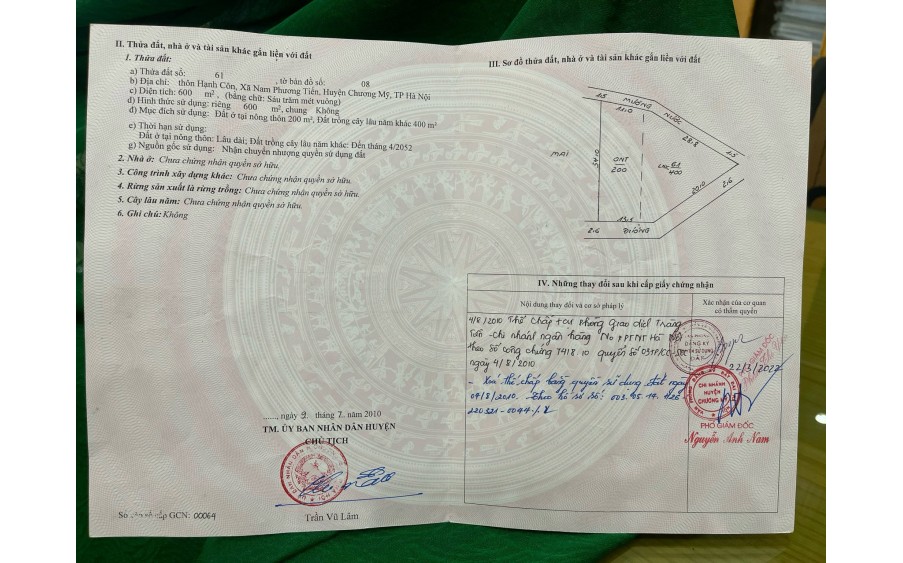 II. Thửa đất, nhà ở và tài sản khác gắn liền với đất
1. Thửa đất:
a) Thửa đất số: 61 , tờ bản đồ số: 08
b) Địa chỉ: thôn Hạnh Côn, Xã Nam Phương Tiến, Huyện Chương Mỹ, TP Hà Nội
c) Diện tích: 600 m², (bằng chữ: Sáu trăm mét vuông)
d) Hình thức sử dụng: riêng 600 m², chung Không
đ) Mục đích sử dụng: Đất ở tại nông thôn 200 m², Đất trồng cây lâu năm 400 m²
e) Thời hạn sử dụng:
Đất ở tại nông thôn: Lâu dài; Đất trồng cây lâu năm: Đến tháng 4/2052
g) Nguồn gốc sử dụng: Nhận chuyển nhượng quyền sử dụng đất
2. Nhà ở: Chưa chứng nhận quyền sở hữu.
3. Công trình xây dựng khác: Chưa chứng nhận quyền sở hữu.
4. Rừng sản xuất là rừng trồng: Chưa chứng nhận quyền sở hữu.
5. Cây lâu năm: Chưa chứng nhận quyền sở hữu.
6. Ghi chú: Không
......, ngày 9 tháng 7 năm 2010
TM. ỦY BAN NHÂN DÂN HUYỆN
CHỦ TỊCH
Trần Vũ Lâm
Số vào sổ cấp GCN: 00064
III. Sơ đồ thửa đất, nhà ở và tài sản khác gắn liền với đất
MƯƠNG NƯỚC
28.8
MAI
34.10
ONT
200
LNC 61
400
20.10
2.6
13.1
2.6 ĐƯỜNG
IV. Những thay đổi sau khi cấp giấy chứng nhận
Nội dung thay đổi và cơ sở pháp lý
Xác nhận của cơ quan
có thẩm quyền
4/8/2010 Thế chấp tại Phòng Giao dịch
Chi nhánh ngân hàng No & PTNT Hà
theo số công chứng 7418.10 quyển số
ngày 4/8/2010
- Xoá thế chấp bằng quyền sử dụng đất ngày
04/8/2010. Theo hồ sơ số: 003.05.14.
220321-0044
22/3/2022
CHI NHÁNH
HUYỆN
CHƯƠNG MỸ
PHÓ GIÁM ĐỐC
Nguyễn Anh Nam